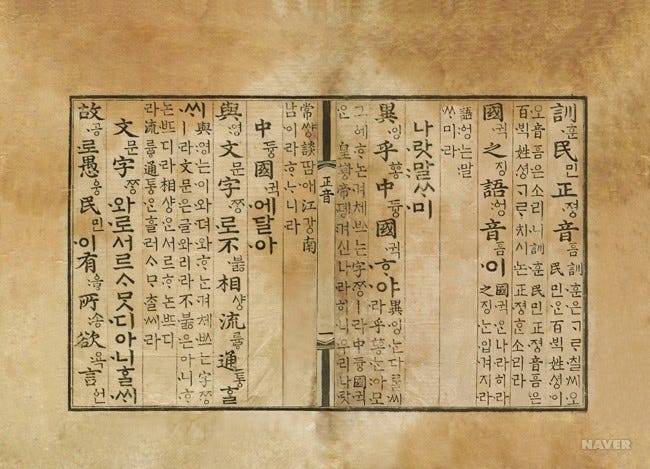 訓훈民민正졍音흠 訓훈은ᄀᆞᄅᆞ칠씨오
民민ᄋᆞᆫ百ᄇᆡᆨ姓셩이
오音흠은소리니訓훈民민正졍音흠은
百ᄇᆡᆨ姓셩ᄀᆞᄅᆞ치시논正졍ᄒᆞᆫ소리라
國귁之징語ᅌᅥᆼ音흠이 國귁ᄋᆞᆫ나라히라
之징ᄂᆞᆫ입겨지라
語ᅌᅥᆼ는말
ᄊᆞ미라
나랏말ᄊᆞ미
異잉乎ᅘᅩᆼ中듕國귁ᄒᆞ야 異잉ᄂᆞᆫ다ᄅᆞᆯ씨
라乎ᅘᅩᆼᄂᆞᆫ아모
그ᅌᅦᄒᆞ논겨체ᄡᅳ는字ᄍᆞᆼㅣ라中듕國귁
은皇ᅘᅪᆼ帝뎽겨신나라히니우리나랏
正音
一
常썅談땀애江강南
남이라ᄒᆞᄂᆞ니라
中듕國귁에달아
與영文문字ᄍᆞᆼ로不붏相샹流륳通통ᄒᆞᆯ
ᄊᆡ 與영는이와뎌와ᄒᆞ는겨체ᄡᅳ는字ᄍᆞᆼ
ㅣ라文문은글와리라不붏은아니ᄒᆞ
논ᄠᅳ디라相샹ᄋᆞᆫ서르ᄒᆞ논ᄠᅳ디
라流륳通통은흘러ᄉᆞᄆᆞᄎᆞᆯ씨라
文문字ᄍᆞᆼ와로서르ᄉᆞᄆᆞᆺ디아니ᄒᆞᆯᄊᆡ
故공로愚ᅌᅮᆼ民민이有ᅌᅮᇢ所송欲욕言언
NAVER